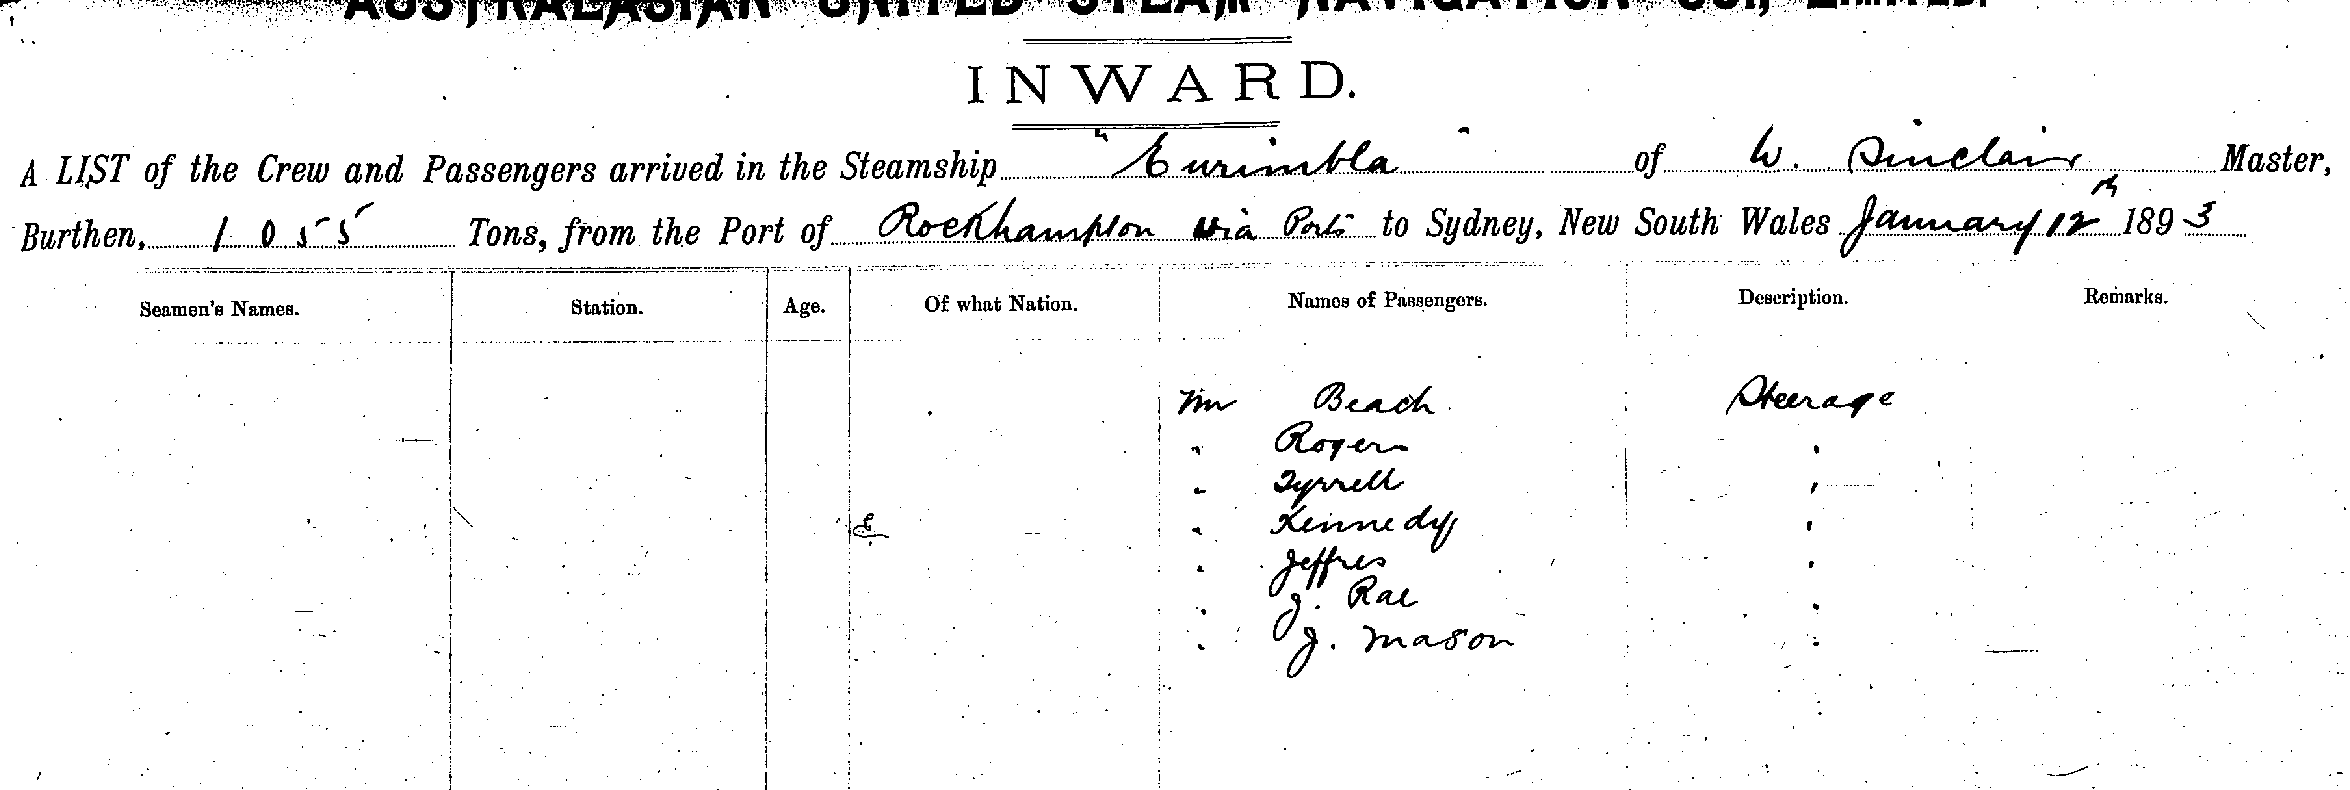 AUSTRALASIAN UNITED STEAM NAVIGATION CO., LIMITED.
INWARD.
A LIST of the Crew and Passengers arrived in the Steamship "Eurimbla" of W. Sinclair Master,
Burthen, 1055 Tons, from the Port of Rockhampton via Ports to Sydney, New South Wales January 12th 1893
Seamen's Names. Station. Age. Of what Nation. Names of Passengers. Description. Remarks.
Mr Beach Steerage
" Rogers "
" Tyrrell "
" Kennedy "
" Jeffres "
" J. Rae "
" J. Mason "